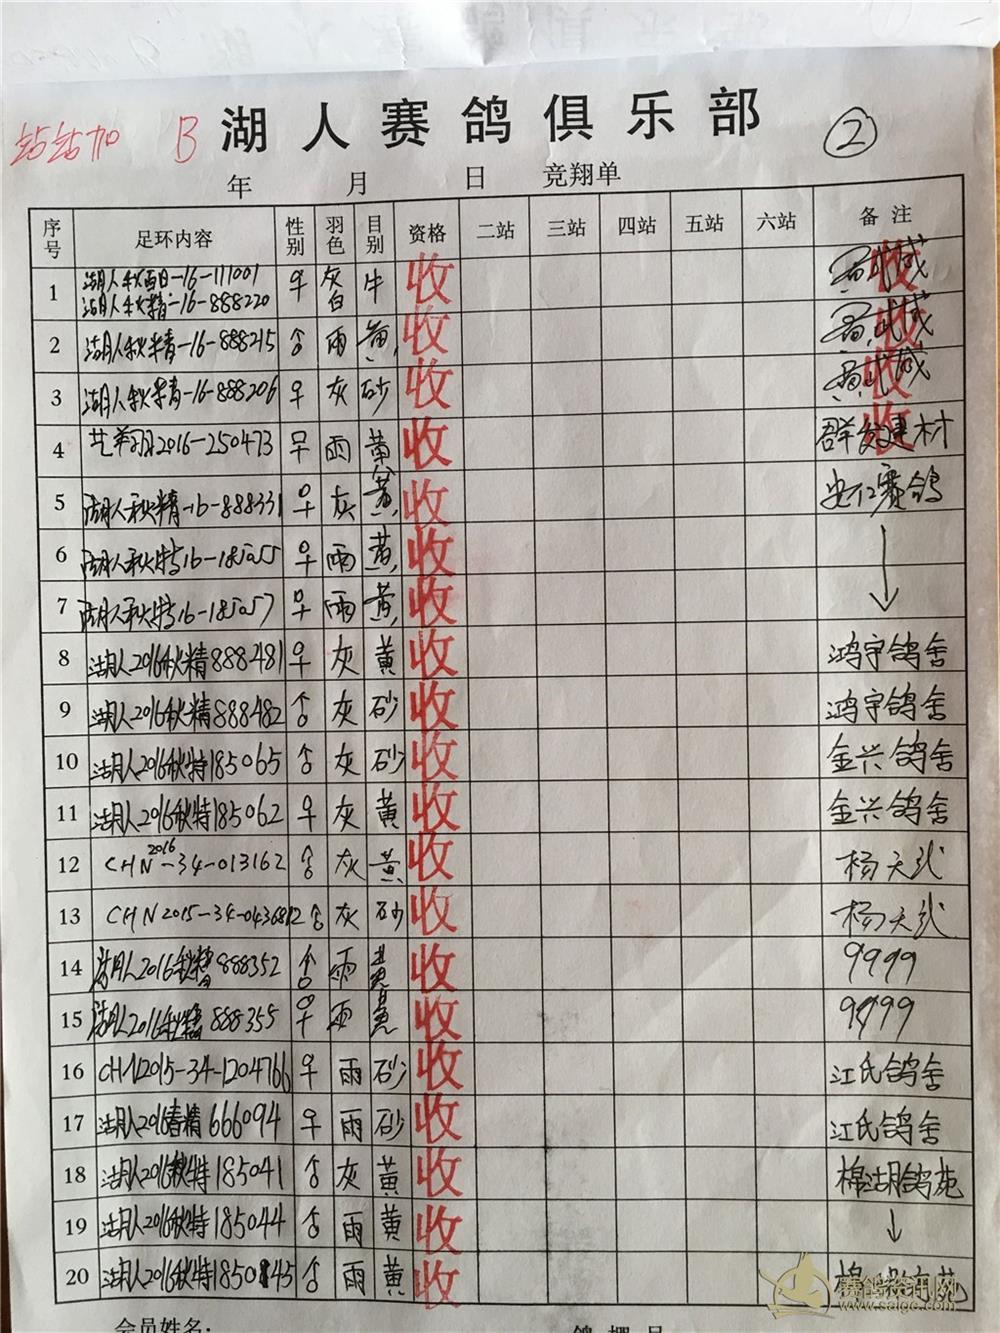 站站加 B 湖人赛鸽俱乐部 ②
年 月 日 竞翔单
序号 足环内容 性别 羽色 目别 资格 二站 三站 四站 五站 六站 备注
1 湖人秋酉日-16-111001 ♀ 灰白 牛 收 收
湖人秋精-16-888220
2 湖人秋精-16-888215 ♂ 雨 黄 收 收
3 湖人秋精-16-888206 ♀ 灰 砂 收 收
4 2016-250473 ♀ 雨 黄 收 群发建材 收
5 湖人秋精-16-888331 ♀ 灰 黄 收 赛鸽
6 湖人秋特16-185055 ♀ 雨 黄 收 ↓
7 湖人秋特16-185057 ♀ 雨 黄 收
8 湖人2016秋精888481 ♀ 灰 黄 收 鸿宇鸽舍
9 湖人2016秋精888482 ♂ 灰 砂 收 鸿宇鸽舍
10 湖人2016秋特185065 ♂ 灰 砂 收 金兴鸽舍
11 湖人2016秋特185062 ♀ 灰 黄 收 金兴鸽舍
12 CHN2016-34-013162 ♂ 灰 黄 收 杨天
13 CHN2015-34-0436812 ♂ 灰 砂 收 杨天
14 湖人2016秋精888352 ♂ 雨 黄 收 9999
15 湖人2016秋精888355 ♀ 雨 黄 收 9999
16 CHN2015-34-1204766 ♀ 雨 砂 收 江氏鸽舍
17 湖人2016春精666094 ♀ 雨 砂 收 江氏鸽舍
18 湖人2016秋特185041 ♂ 灰 黄 收 棉湖鸽苑
19 湖人2016秋特185044 ♂ 雨 黄 收 ↓
20 湖人2016秋特185045 ♂ 雨 黄 收
赛鸽资讯网
www.saige.com
会员姓名：